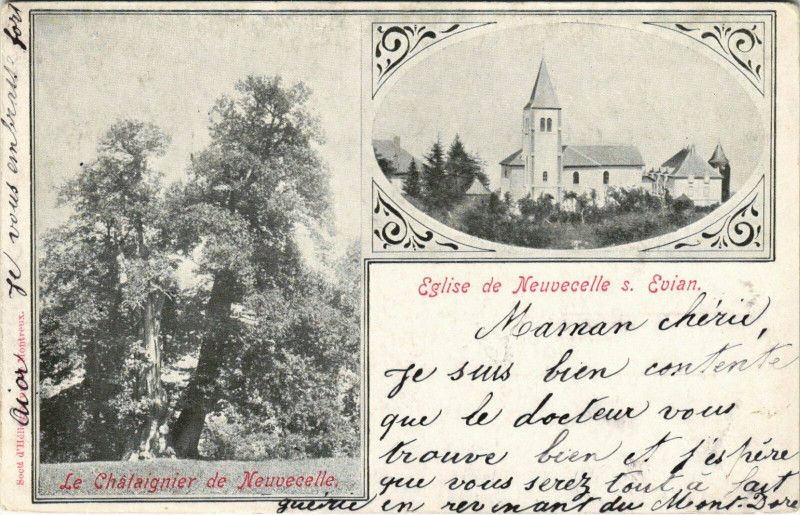 Eglise de Neuvecelle s. Evian.
Maman chérie,
je suis bien contente
que le docteur vous
trouve bien et j'espère
que vous serez tout a fait
guérie en revenant du Mont-Dore
Je vous embrasse fort
Le Châtaignier de Neuvecelle.
Socté d'Héli Montreux.